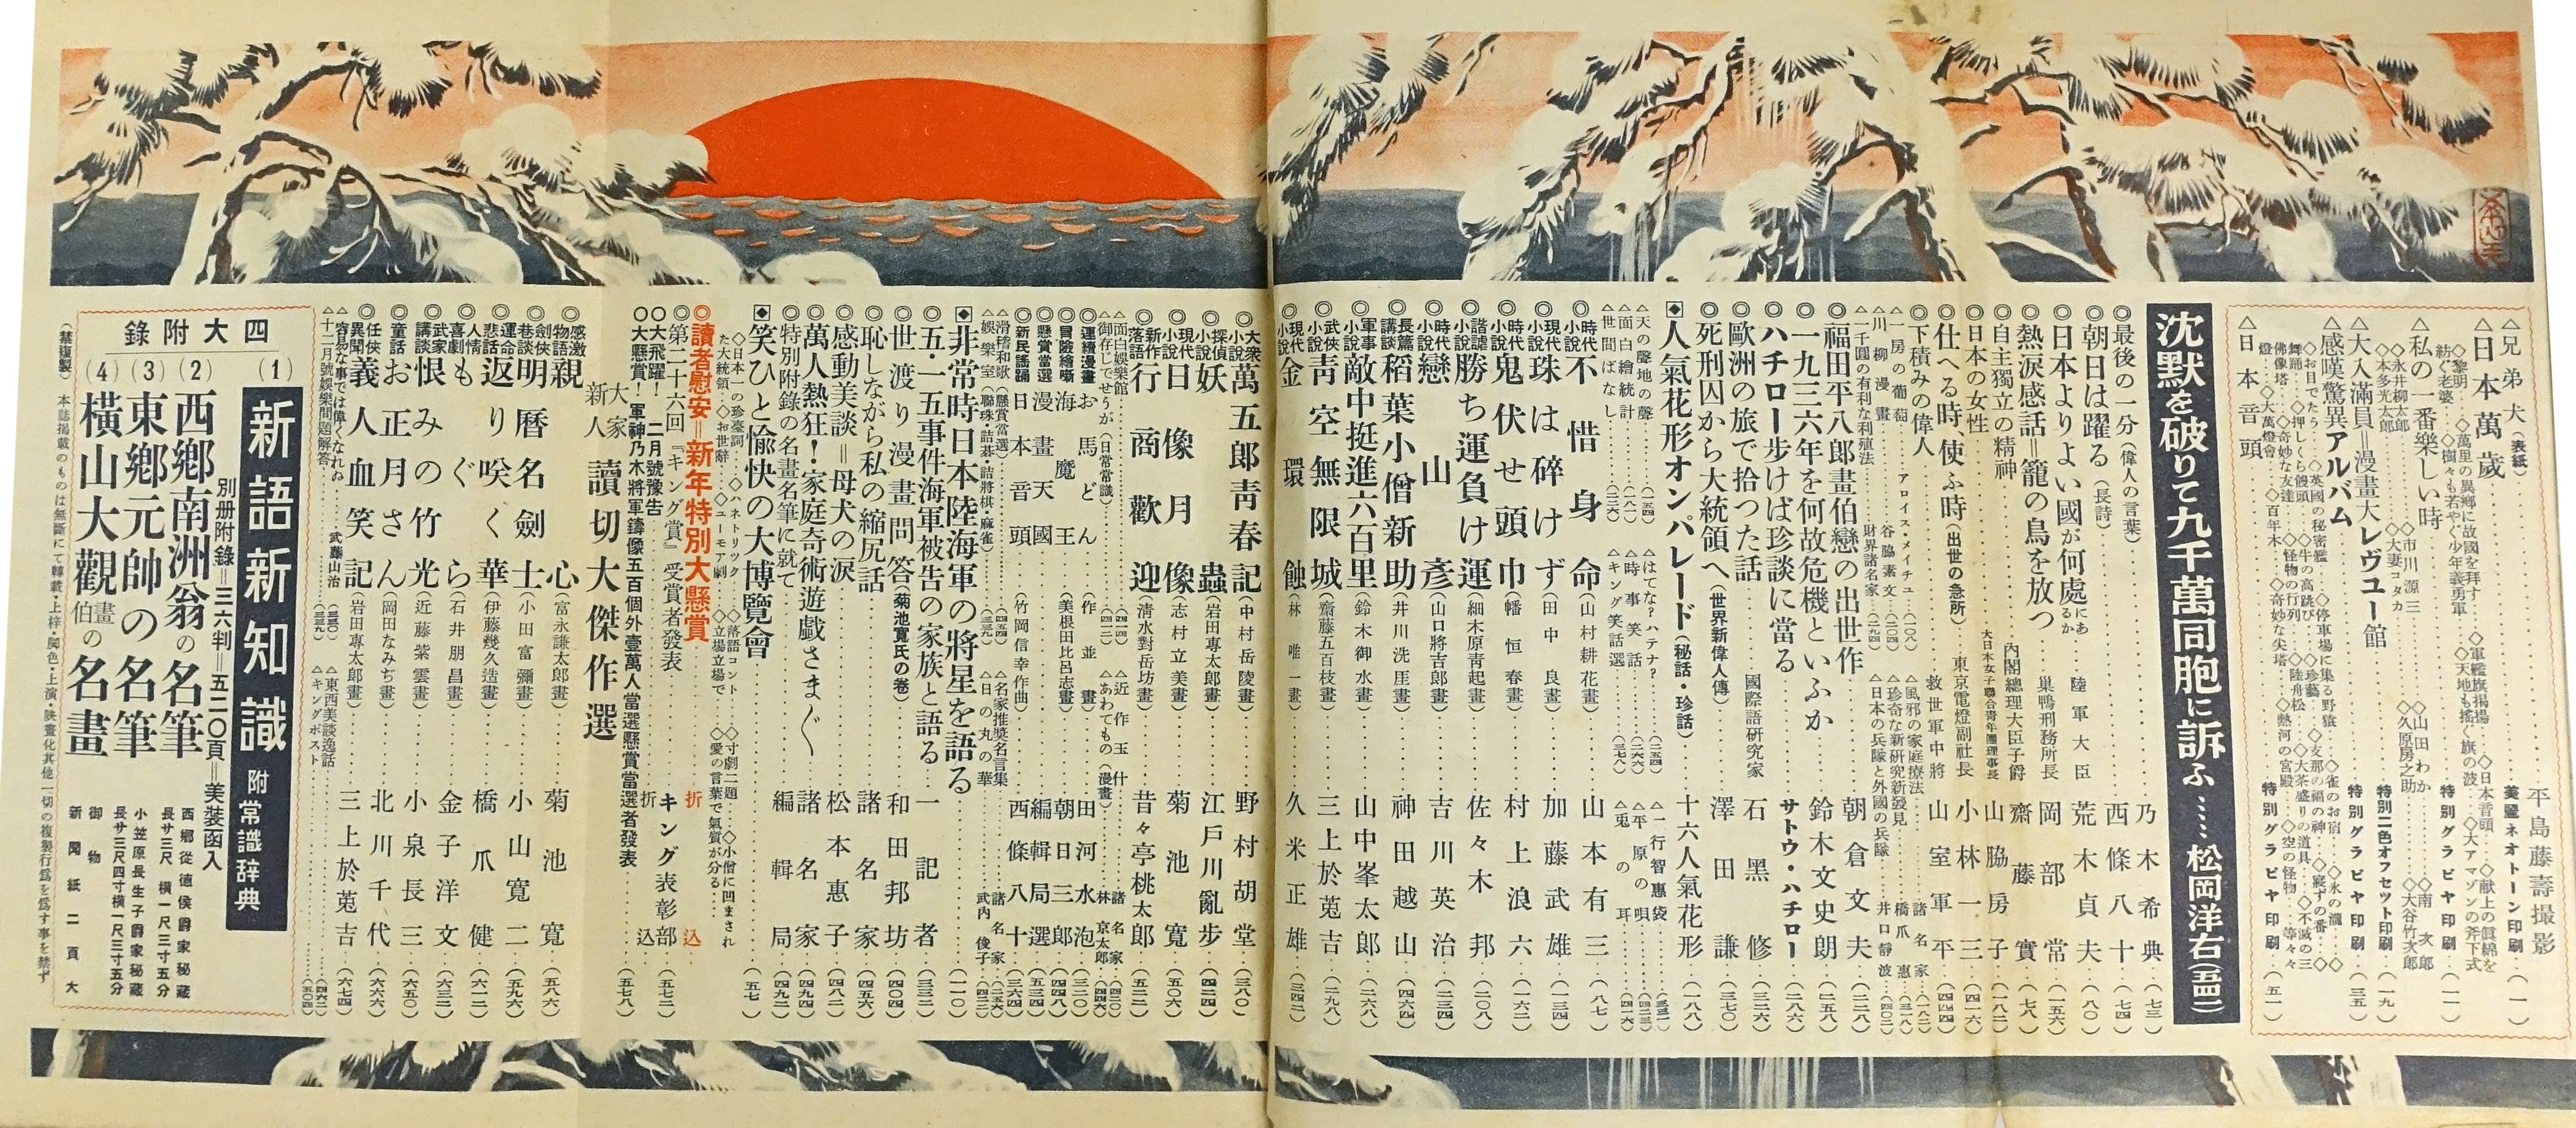 △兄弟犬（表紙）……平島藤壽撮影
△日本萬歲……美麗ネオトーン印刷（一）
◇黎明……◇萬里の異郷に故國を拜す……◇軍艦旗揚揚……◇日本音頭……◇献上の眞綿を
紡ぐ老婆……◇樹々も若やぐ少年義勇軍……◇天地も搖ぐ旗の波……◇大アマゾンの斧下式
△私の一番樂しい時……特別グラビヤ印刷（一一）
◇市川源三……◇山田わか……◇南次郎
◇永井柳太郎……◇大妻コタカ……◇久原房之助……◇大谷竹次郎
◇本多光太郎
△大入滿員＝漫畫大レヴュー館……特別二色オフセット印刷（一九）
△感嘆驚異アルバム……特別グラビヤ印刷（三五）
◇お目でたう……◇英國の秘密艦……◇停車場に集る野猿……◇雀のお宿……◇氷の瀧……◇
舞踊……◇押しくら饅頭……◇牛の高跳び……◇珍藝……◇支那の福の神……◇寢ずの番……◇
佛像塔……◇奇妙な友達……◇怪物の行列……◇陸舟松……◇大茶盛りの道具……◇不滅の三
燈……◇大萬燈會……◇百年木……◇奇妙な尖塔……◇熱河の宮殿……◇空の怪物……等々
△日本音頭……特別グラビヤ印刷（五一）
沈默を破りて九千萬同胞に訴ふ……松岡洋右（五四二）
◎最後の一分（偉人の言葉）……乃木希典（七三）
◎朝日は躍る（長詩）……西條八十（七四）
◎日本よりよい國が何處にあるか……陸軍大臣 荒木貞夫（八〇）
◎熱淚感話＝籠の鳥を放つ……巢鴨刑務所長 岡部常（一五六）
◎自主獨立の精神……內閣總理大臣子爵 齋藤實（七六）
◎日本の女性……大日本女子聯合青年團理事長 山脇房子（一八二）
◎仕へる時使ふ時（出世の急所）……東京電燈副社長 小林一三（四一六）
◎下積みの偉人……救世軍中將 山室軍平（四四四）
△一房の葡萄……アロイス・メイチュ（一〇八）
△川柳漫畫……谷脇素文（二〇四）
△一千圓の有利な利殖法……財界諸名家（二九四）
△風邪の家庭療法……諸名家（一八二）
△珍奇な新研究新發見……橋爪惠（三一八）
△日本の兵隊と外國の兵隊……井口靜波（四〇二）
◎福田平八郎畫伯戀の出世作……朝倉文夫（二二八）
◎一九三六年を何故危機といふか……鈴木文史朗（二五八）
◎ハチロー步けば珍談に當る……サトウ・ハチロー（二八六）
◎歐洲の旅で拾つた話……國際語硏究家 石黑修（三二六）
◎死刑囚から大統領へ（世界新偉人傳）……澤田謙（三七〇）
◈人氣花形オンパレード（秘話・珍話）……十六人氣花形（一八八）
△天の聲地の聲……（一五四）
△面白繪統計……（一八一）
△世間ばなし……（二三六）
△はてな？ハテナ？……（二五四）
△時事笑話……（二六六）
△キング笑話選……（三七八）
△一行智惠袋……（三三一）
△平原の唄……（四二三）
△兎の耳……（四一六）
◎時代小說 不惜身命（山村耕花畫）……山本有三（八七）
◎現代小說 珠は碎けず（田中良畫）……加藤武雄（一三四）
◎時代小說 鬼伏せ頭巾（幡恒春畫）……村上浪六（一六二）
◎諧謔小說 勝ち運負け運（細木原青起畫）……佐々木邦（二〇八）
◎時代小說 戀山彥（山口將吉郎畫）……吉川英治（二三四）
◎長篇講談 稻葉小僧新助（井川洗厓畫）……神田越山（四六四）
◎軍事小說 敵中挺進六百里（鈴木御水畫）……山中峯太郎（二六八）
◎武俠小說 青空無限城（齋藤五百枝畫）……三上於菟吉（二九八）
◎現代小說 金環蝕（林唯一畫）……久米正雄（三四二）
◎大衆小說 萬五郎青春記（中村岳陵畫）……野村胡堂（三八〇）
◎探偵小說 妖蟲（岩田專太郎畫）……江戶川亂步（四二四）
◎現代小說 日像月像（志村立美畫）……菊池寬（五〇六）
◎新作落語 行商歡迎（清水對岳坊畫）……昔々亭桃太郎（五二二）
△面白娛樂館……（四一四）
△御存じでせうが（日常常識）……（四二二）
△近作玉什……諸名家（四二〇）
△あわてもの（漫畫）……林京太郎（四四六）
◎連續漫畫 お馬どん（作並畫）……田河水泡（三二〇）
◎冒險繪噺 海魔王（美根田比呂志畫）……朝日三郎（四四八）
◎懸賞當選 漫畫天國……編輯局選（五三四）
◎新民謠踊 日本音頭（竹岡信幸作曲）……西條八十（三六四）
△滑稽和歌（懸賞當選）……（四五四）
△娛樂室（聯珠・詰碁・詰將棋・麻雀）……（三三九）
△名家推奬名言集……諸名家（一五六）
△日の丸の華……武內俊子（四二二）
◈非常時日本陸海軍の將星を語る……（一一〇）
◎五・一五事件海軍被告の家族と語る……一記者（三三二）
◎世渡り漫畫問答（菊池寬氏の卷）……和田邦坊（四〇四）
◎恥しながら私の縮尻話……諸名家（四五六）
◎感動美談＝母犬の淚……松本惠子（四八二）
◎萬人熱狂！家庭奇術遊戲さまぐ……諸名家（四九四）
◎特別附錄の名畫名筆に就て……編輯局（四九二）
◈笑ひと愉快の大博覽會……（五七）
◇日本一の珍臺詞……◇ハネトリツク……◇落語コント……◇寸劇二題……◇小僧に凹まされ
た大統領……◇お世辭……◇ユーモア劇……◇立場立場で……◇愛の言葉で氣質が分る……
◎讀者慰安＝新年特別大懸賞……折込
◎第二十六回『キング賞』受賞者發表……キング表彰部（五七二）
○大飛躍！二月號豫告……折込
○大懸賞！軍神乃木將軍鑄像五百個外壹萬人當選懸賞當選者發表……（五七八）
大家新人讀切大傑作選
◎感激物語 親心（富永謙太郎畫）……菊池寬（五八六）
◎劍俠巷談 明曆名劍士（小田富彌畫）……小山寬二（五九六）
◎運命悲話 返り咲く華（伊藤幾久造畫）……橋爪健（六一二）
◎人情喜劇 もぐら（石井朋昌畫）……金子洋文（六三二）
◎武家講談 恨みの竹光（近藤紫雲畫）……小泉長三（六五〇）
◎童話 お正月さん（岡田なみぢ畫）……北川千代（六六六）
◎任俠異聞 義人血笑記（岩田專太郎畫）……三上於菟吉（六七四）
△容易な事では偉くなれぬ……武藤山治（三五〇）
△十二月號娛樂問題解答……（三三九）
△東西美談逸話……（四六二）
△キングポスト……（五〇四）
四大附錄
（1）新語新知識 附 常識辭典
別册附錄＝三六判＝五二〇頁＝美裝函入
（2）西鄉南洲翁の名筆 西鄉從德侯爵家秘藏 長サ三尺 橫一尺三寸五分
（3）東鄉元帥の名筆 小笠原長生子爵家秘藏 長サ三尺四寸橫一尺三寸五分
（4）橫山大觀畫伯の名畫 御物 新聞紙二頁大
（禁複製）本誌揭載のものは無斷にて轉載・上梓・脚色・上演・映畫化其他一切の複製行爲を爲す事を禁ず